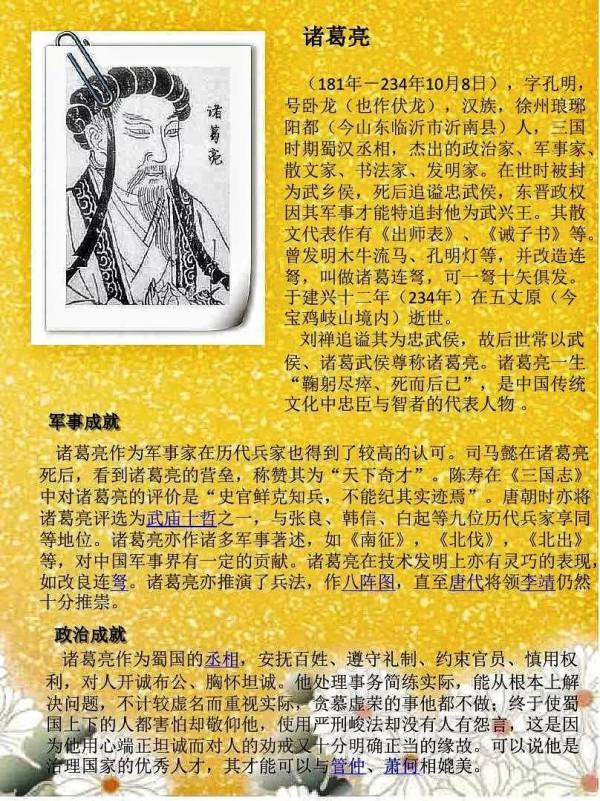 诸葛亮
诸葛亮
（181年－234年10月8日），字孔明，
号卧龙（也作伏龙），汉族，徐州琅琊
阳都（今山东临沂市沂南县）人，三国
时期蜀汉丞相，杰出的政治家、军事家、
散文家、书法家、发明家。在世时被封
为武乡侯，死后追谥忠武侯，东晋政权
因其军事才能特追封他为武兴王。其散
文代表作有《出师表》、《诫子书》等。
曾发明木牛流马、孔明灯等，并改造连
弩，叫做诸葛连弩，可一弩十矢俱发。
于建兴十二年（234年）在五丈原（今
宝鸡岐山境内）逝世。
刘禅追谥其为忠武侯，故后世常以武
侯、诸葛武侯尊称诸葛亮。诸葛亮一生
“鞠躬尽瘁、死而后已”，是中国传统
文化中忠臣与智者的代表人物 。
军事成就
诸葛亮作为军事家在历代兵家也得到了较高的认可。司马懿在诸葛亮
死后，看到诸葛亮的营垒，称赞其为“天下奇才”。陈寿在《三国志》
中对诸葛亮的评价是“史官鲜克知兵，不能纪其实迹焉”。唐朝时亦将
诸葛亮评选为武庙十哲之一，与张良、韩信、白起等九位历代兵家享同
等地位。诸葛亮亦作诸多军事著述，如《南征》，《北伐》，《北出》
等，对中国军事界有一定的贡献。诸葛亮在技术发明上亦有灵巧的表现，
如改良连弩。诸葛亮亦推演了兵法，作八阵图，直至唐代将领李靖仍然
十分推崇。
政治成就
诸葛亮作为蜀国的丞相，安抚百姓、遵守礼制、约束官员、慎用权
利，对人开诚布公、胸怀坦诚。他处理事务简练实际，能从根本上解
决问题，不计较虚名而重视实际，贪慕虚荣的事他都不做；终于使蜀
国上下的人都害怕却敬仰他，使用严刑峻法却没有人有怨言，这是因
为他用心端正坦诚而对人的劝戒又十分明确正当的缘故。可以说他是
治理国家的优秀人才，其才能可以与管仲、萧何相媲美。